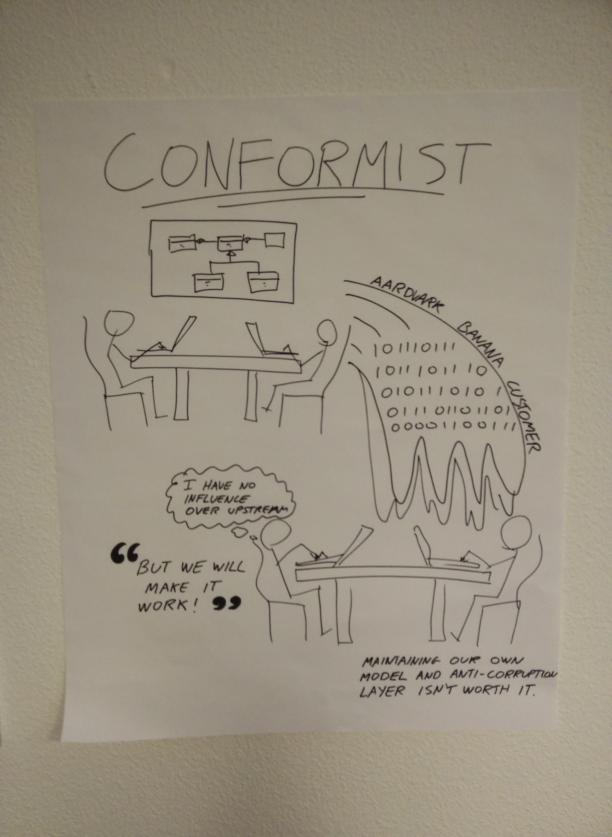 CONFORMIST
AARDVARK BANANA CUSTOMER
101110111
10111011 10
010111010
0111 0110110
0000011 00111
I HAVE NO
INFLUENCE
OVER UPSTREAM
“BUT WE WILL
MAKE IT
WORK!”
MAINTAINING OUR OWN
MODEL AND ANTI-CORRUPTION
LAYER ISN'T WORTH IT.